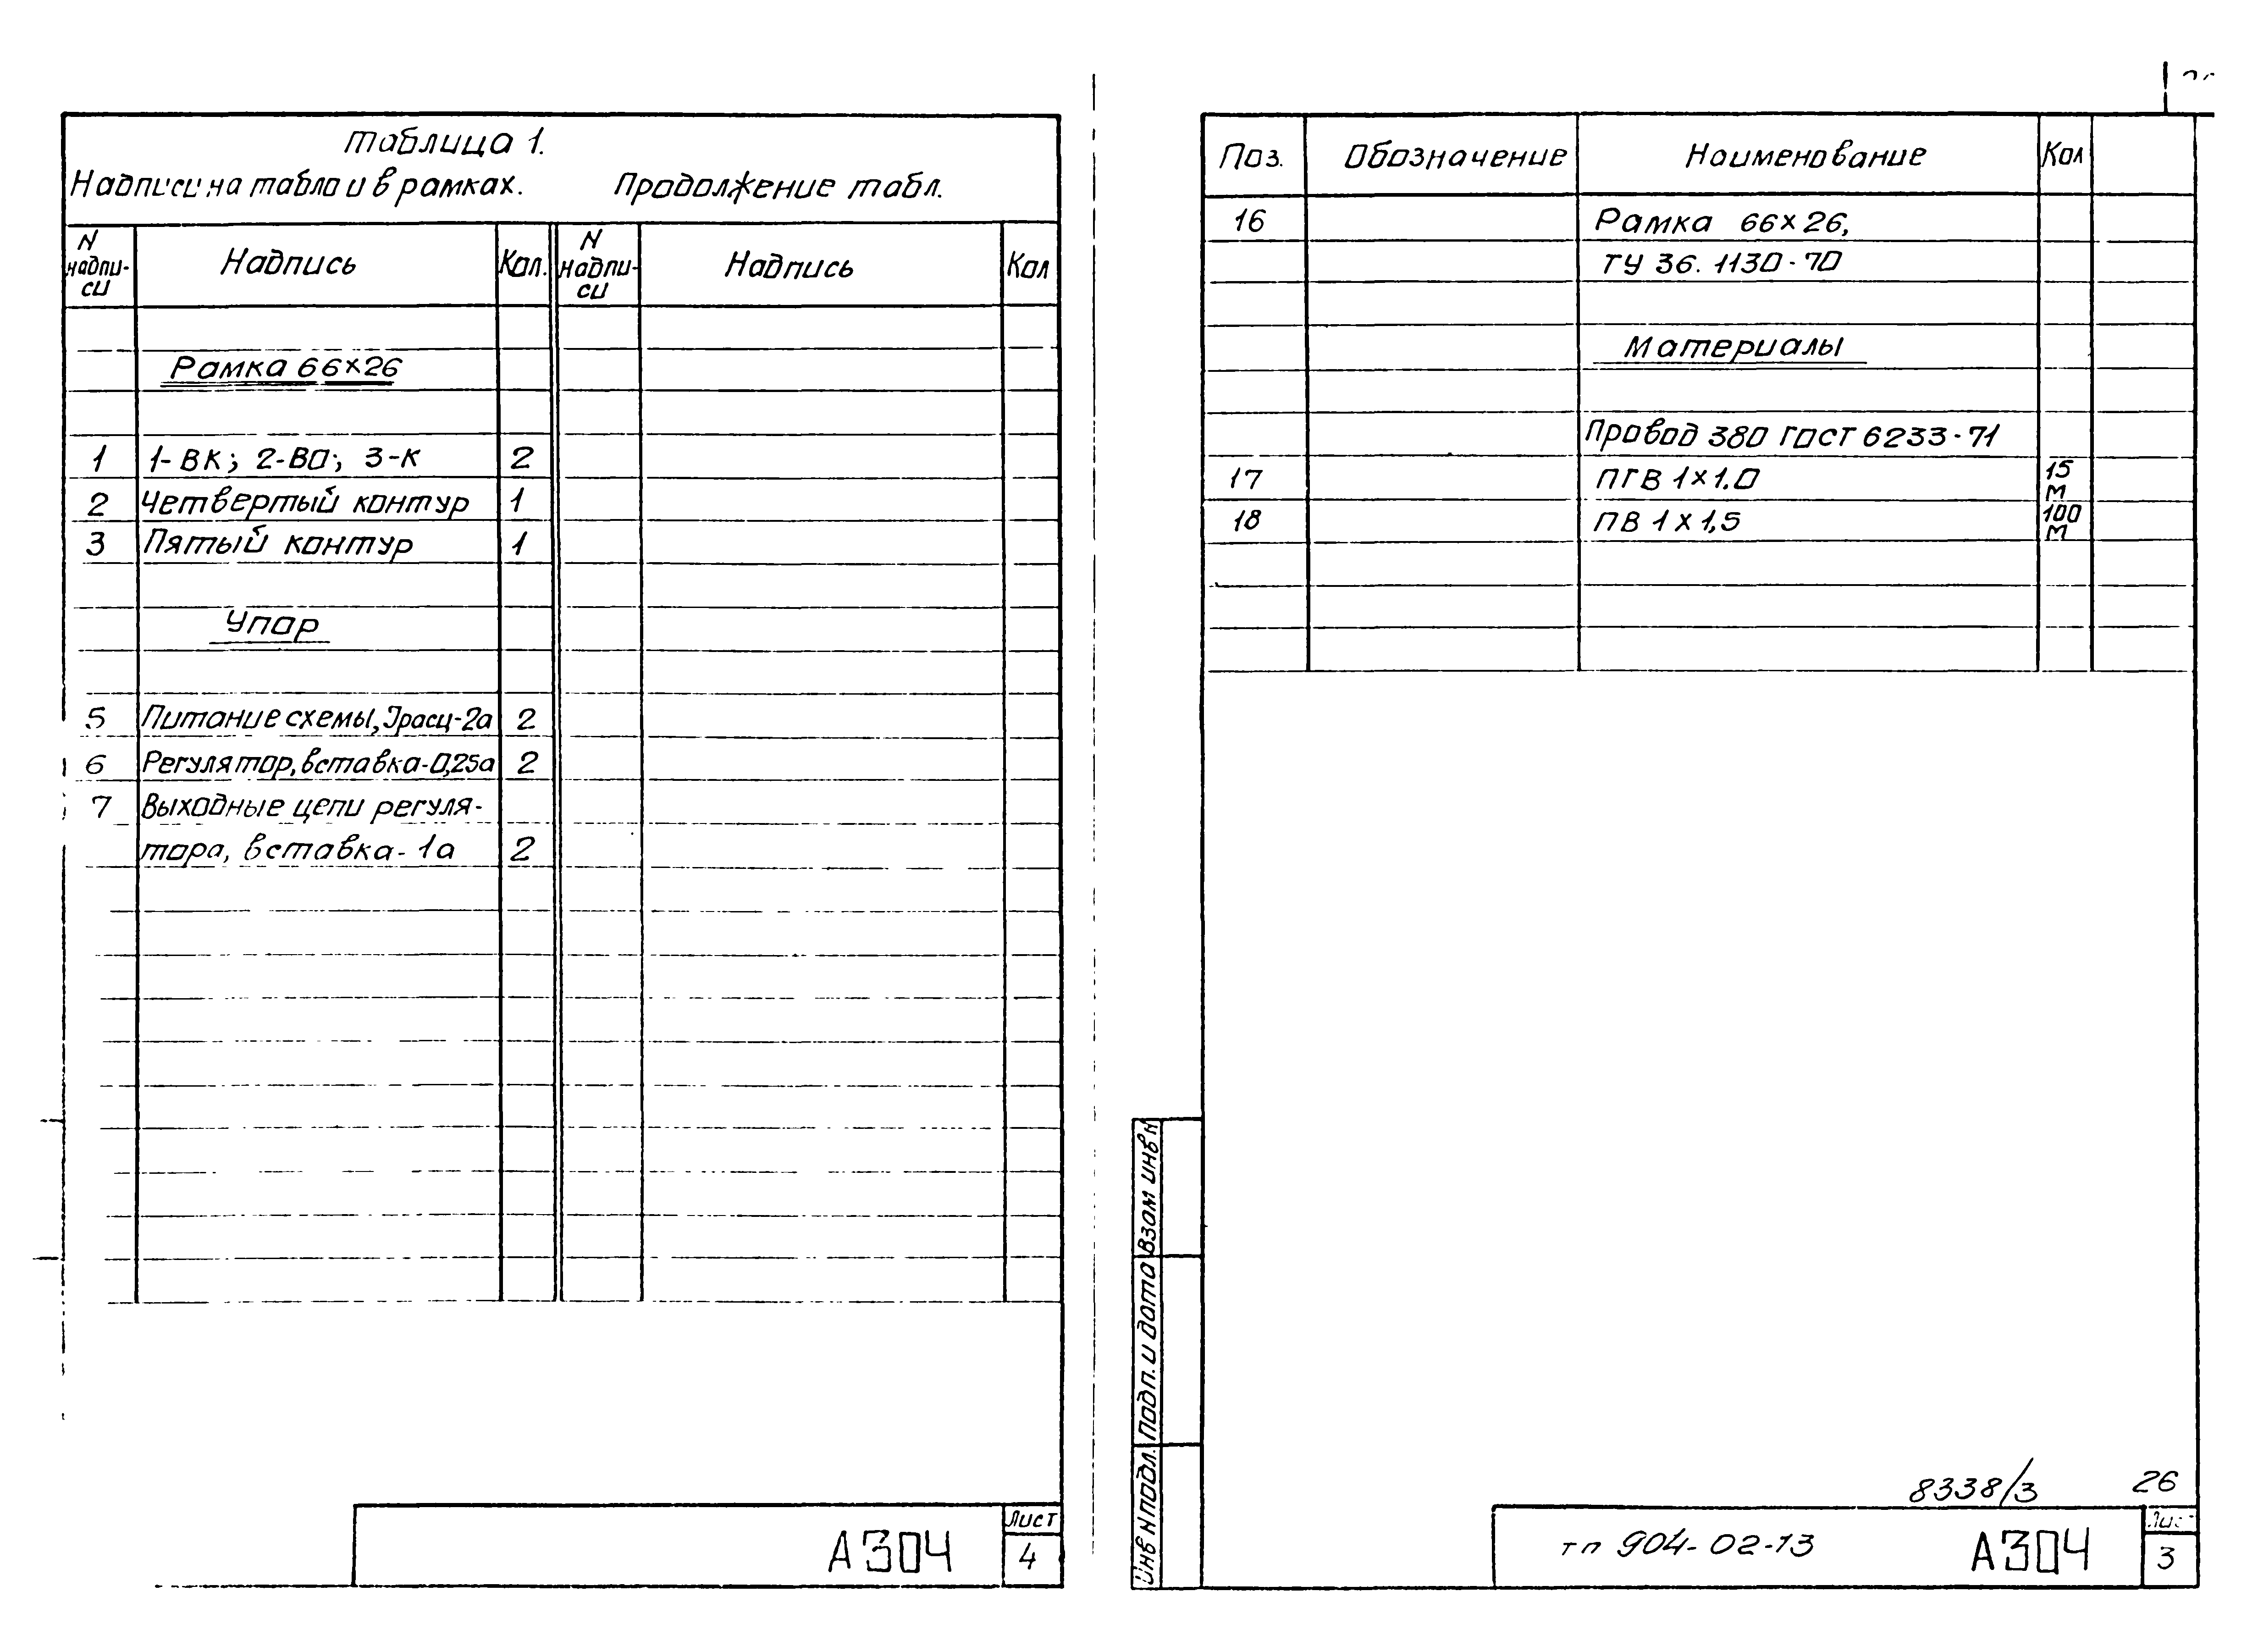 Таблица 1.
Надписи на табло и в рамках. Продолжение табл.
N надпи-си Надпись Кол. N надпи-си Надпись Кол
Рамка 66×26
1 1-ВК; 2-ВО; 3-К 2
2 Четвертый контур 1
3 Пятый контур 1
Упор
5 Питание схемы, Iрасц-2а 2
6 Регулятор, вставка-0,25а 2
7 Выходные цепи регуля-
тора, вставка-1а 2
А304
Лист
4
Поз. Обозначение Наименование Кол
16 Рамка 66×26,
ТУ 36.1130-70
Материалы
Провод 380 ГОСТ 6233-71
17 ПГВ 1×1.0 15 м
18 ПВ 1×1,5 100 м
Взам инв N
Подп. и дата
Инв N подл.
8338/3 26
тп 904-02-13 А304
Лист
3